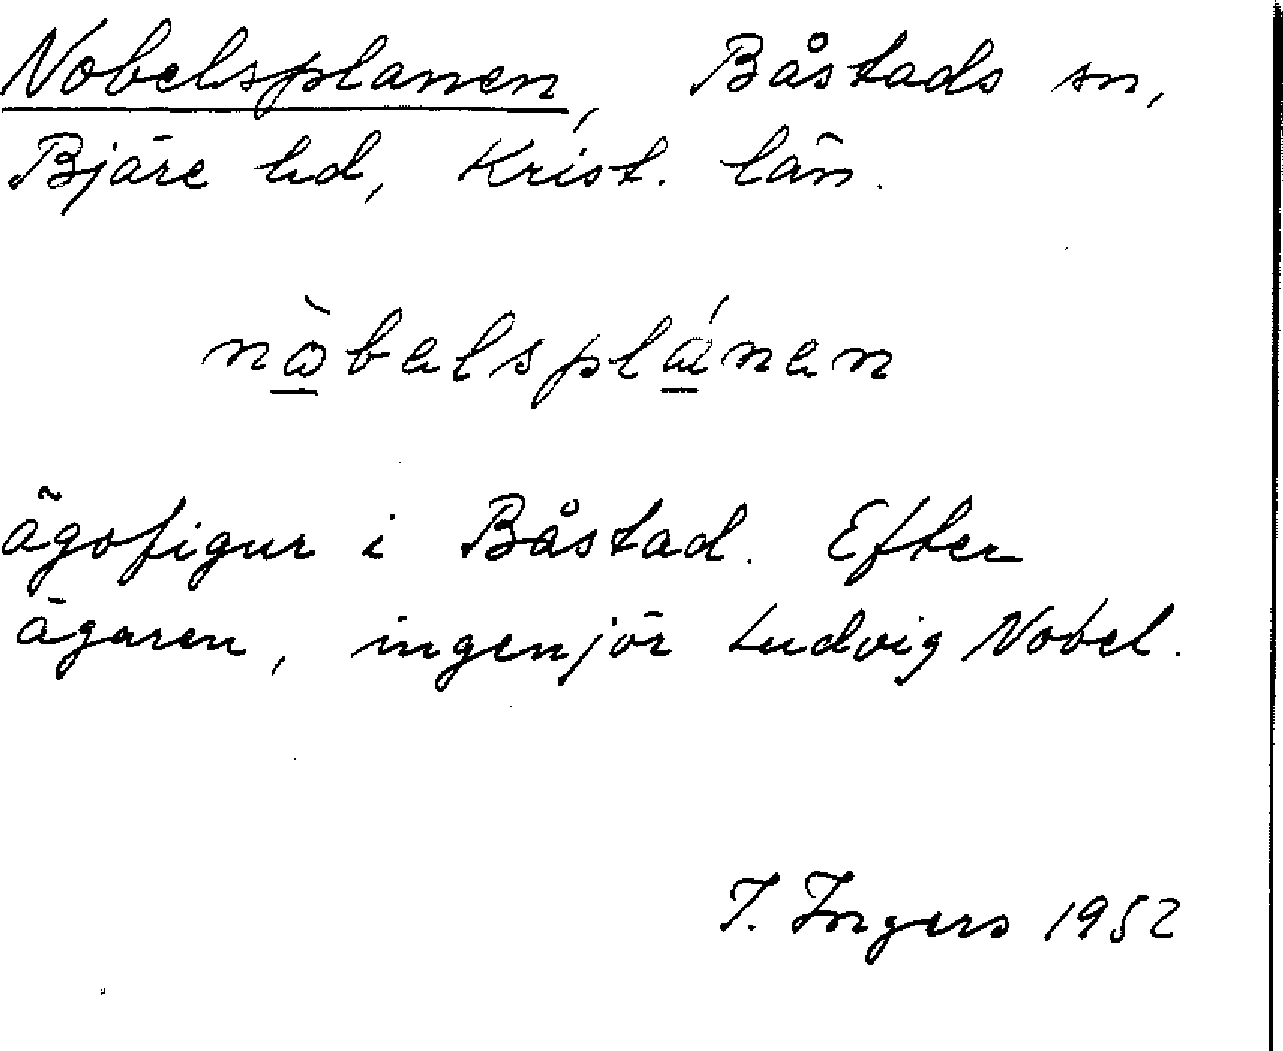 Nobelsplanen, Båstads sn,
Bjäre hd, Krist. län.
nòbelsplánen
ägofigur i Båstad. Efter
ägaren, ingenjör Ludvig Nobel.
I. Ingers 1952